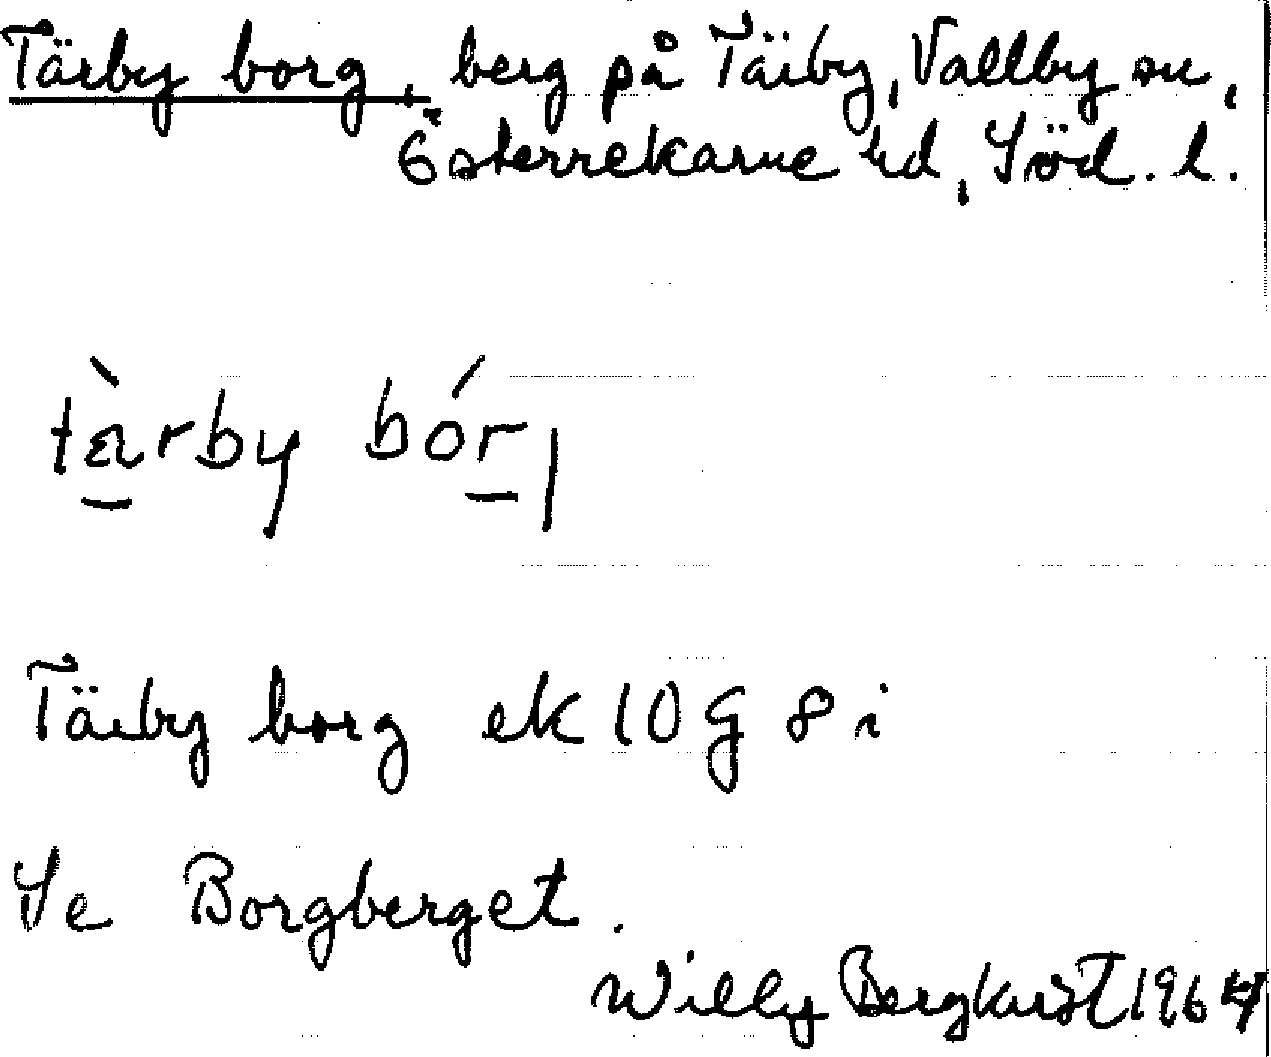 Tärby borg, berg på Tärby, Vallby sn,
Österrekarne hd, Söd. l.
tæ̀rby bórj
Tärby borg ek 10 G 8 i
Se Borgberget.
Willy Bergkvist 1964